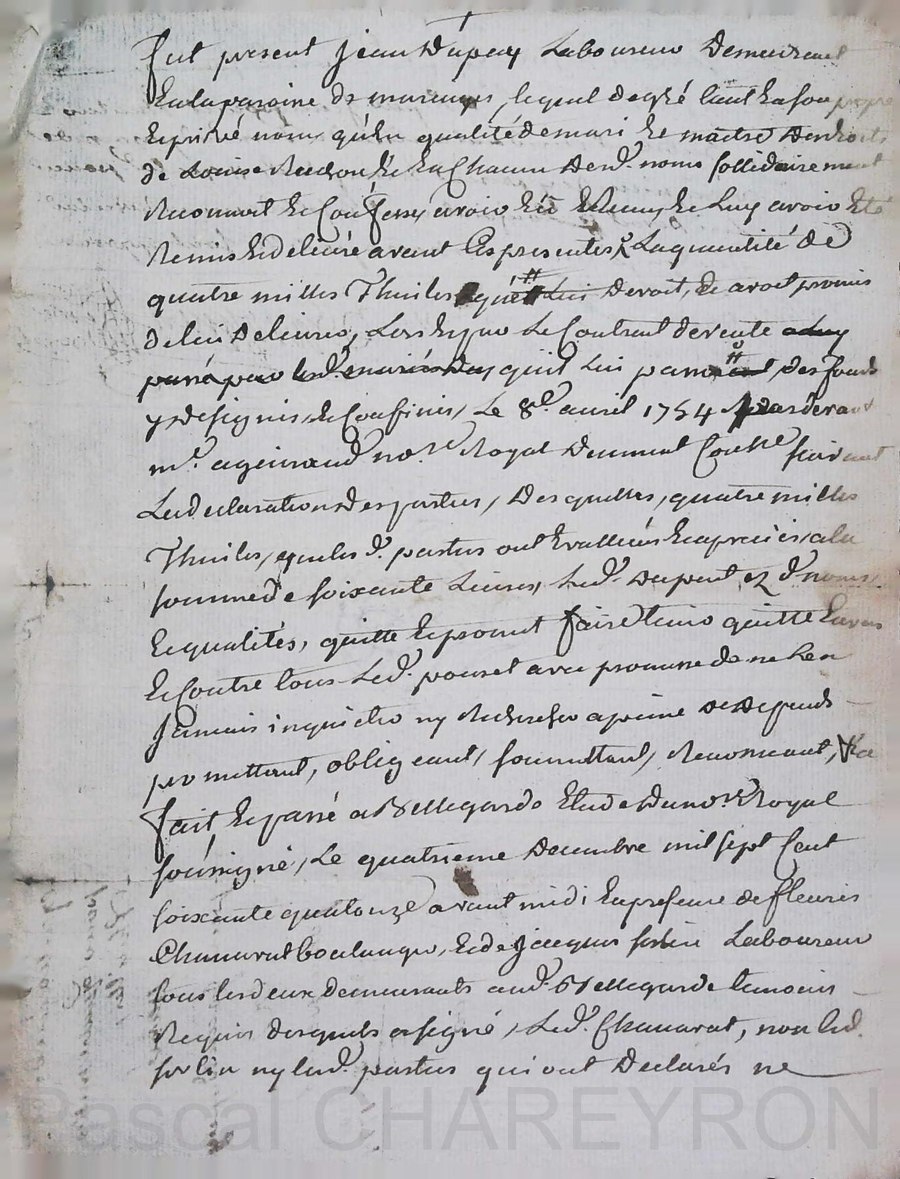 fut present Jean Dupuy Laboureur Demeurant
En la paroisse de marcenges lequel de gré tant En son propre
Et privé nom, qu'En qualité de mari Et maitre Des droits
de Louise Et En Chacun Desd. noms sollidairement
Reconnoit Et Confesse avoir Eü Et Luy avoir Eté
Remis Et delivré avant Ces presentes, La quantité de
quatre milles Thuiles que Lui Devoit, Et avoit promis
de lui Delivrer, Lors Et que Le Contract de vente
qu'il Lui passa, des fonds
y désignés, Et Confinés, Le 8e. avril 1754 pardevant
me. agniraud nore Royal suivant
La declaration Des parties, Desquelles, quatre milles
Thuiles, que lesd. parties ont Evalluées Et apreciées a la
somme de soixante Livres, Led. Dupuy Ez d. noms,
Et qualités, quitte Et promet faire tenir quitte Envers
Et Contre tous Led. avec promesse de ne L'en
Jamais inquieter ny Rechercher a peine De Depends
promettant, obligeant, soumettant, Renonceant, &ca
fait Et passé a Bellegarde Etude Du nore Royal
soussigné, Le quatrieme Decembre mil sept Cent
soixante quatorze avant midi En presence de fleuris
Chanavat boulanger, Et de Jacques Laboureur
tous les deux Demeurants aud. Bellegarde temoins
Requis desquels a signé, Led. Chanavat, non led.
ny lesd. parties qui ont Declarés ne
Pascal CHAREYRON